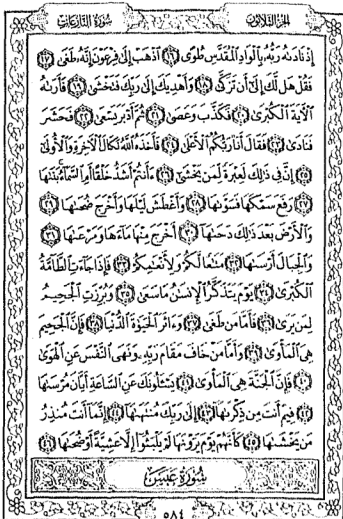 الجزء الثلاثون
سورة النازعات
إِذْ نَادَىٰهُ رَبُّهُۥ بِٱلْوَادِ ٱلْمُقَدَّسِ طُوًى ١٦ ٱذْهَبْ إِلَىٰ فِرْعَوْنَ إِنَّهُۥ طَغَىٰ ١٧
فَقُلْ هَل لَّكَ إِلَىٰٓ أَن تَزَكَّىٰ ١٨ وَأَهْدِيَكَ إِلَىٰ رَبِّكَ فَتَخْشَىٰ ١٩ فَأَرَىٰهُ
ٱلْـَٔايَةَ ٱلْكُبْرَىٰ ٢٠ فَكَذَّبَ وَعَصَىٰ ٢١ ثُمَّ أَدْبَرَ يَسْعَىٰ ٢٢ فَحَشَرَ
فَنَادَىٰ ٢٣ فَقَالَ أَنَا۠ رَبُّكُمُ ٱلْأَعْلَىٰ ٢٤ فَأَخَذَهُ ٱللَّهُ نَكَالَ ٱلْـَٔاخِرَةِ وَٱلْأُولَىٰٓ
٢٥ إِنَّ فِى ذَٰلِكَ لَعِبْرَةً لِّمَن يَخْشَىٰٓ ٢٦ ءَأَنتُمْ أَشَدُّ خَلْقًا أَمِ ٱلسَّمَآءُ بَنَىٰهَا
٢٧ رَفَعَ سَمْكَهَا فَسَوَّىٰهَا ٢٨ وَأَغْطَشَ لَيْلَهَا وَأَخْرَجَ ضُحَىٰهَا ٢٩
وَٱلْأَرْضَ بَعْدَ ذَٰلِكَ دَحَىٰهَآ ٣٠ أَخْرَجَ مِنْهَا مَآءَهَا وَمَرْعَىٰهَا ٣١
وَٱلْجِبَالَ أَرْسَىٰهَا ٣٢ مَتَٰعًا لَّكُمْ وَلِأَنْعَٰمِكُمْ ٣٣ فَإِذَا جَآءَتِ ٱلطَّآمَّةُ
ٱلْكُبْرَىٰ ٣٤ يَوْمَ يَتَذَكَّرُ ٱلْإِنسَٰنُ مَا سَعَىٰ ٣٥ وَبُرِّزَتِ ٱلْجَحِيمُ
لِمَن يَرَىٰ ٣٦ فَأَمَّا مَن طَغَىٰ ٣٧ وَءَاثَرَ ٱلْحَيَوٰةَ ٱلدُّنْيَا ٣٨ فَإِنَّ ٱلْجَحِيمَ
هِىَ ٱلْمَأْوَىٰ ٣٩ وَأَمَّا مَنْ خَافَ مَقَامَ رَبِّهِۦ وَنَهَى ٱلنَّفْسَ عَنِ ٱلْهَوَىٰ
٤٠ فَإِنَّ ٱلْجَنَّةَ هِىَ ٱلْمَأْوَىٰ ٤١ يَسْـَٔلُونَكَ عَنِ ٱلسَّاعَةِ أَيَّانَ مُرْسَىٰهَا
٤٢ فِيمَ أَنتَ مِن ذِكْرَىٰهَآ ٤٣ إِلَىٰ رَبِّكَ مُنتَهَىٰهَآ ٤٤ إِنَّمَآ أَنتَ مُنذِرُ
مَن يَخْشَىٰهَا ٤٥ كَأَنَّهُمْ يَوْمَ يَرَوْنَهَا لَمْ يَلْبَثُوٓا۟ إِلَّا عَشِيَّةً أَوْ ضُحَىٰهَا ٤٦
سورة عبس
٥٨٤